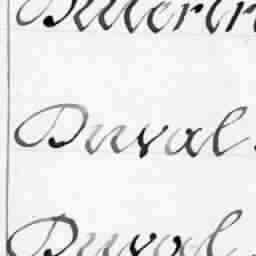 Duval.
Duval.